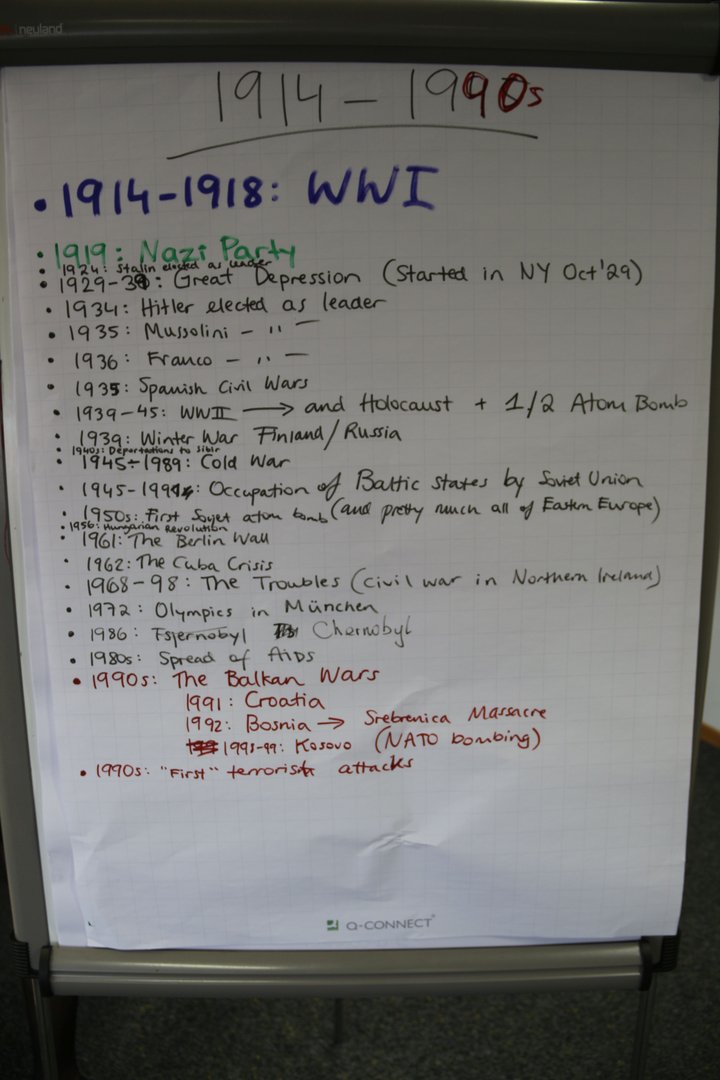 neuland
1914 – 1990s
• 1914-1918: WWI
• 1919: Nazi Party
• 1924: Stalin elected as under
• 1929-39: Great Depression (Started in NY Oct '29)
• 1934: Hitler elected as leader
• 1935: Mussolini – " –
• 1936: Franco – " –
• 1935: Spanish Civil Wars
• 1939-45: WWII → and Holocaust + 1/2 Atom Bomb
• 1939: Winter War Finland/Russia
• 1940s: Deportations to Sibir
• 1945-1989: Cold War
• 1945-1991: Occupation of Baltic States by Soviet Union
• 1950s: First Soviet atom bomb (and pretty much all of Eastern Europe)
• 1956: Hungarian Revolution
• 1961: The Berlin Wall
• 1962: The Cuba Crisis
• 1968-98: The Troubles (civil war in Northern Ireland)
• 1972: Olympics in München
• 1986: Tsjernobyl Chernobyl
• 1980s: Spread of AIDS
• 1990s: The Balkan Wars
1991: Croatia
1992: Bosnia → Srebrenica Massacre
1995-99: Kosovo (NATO bombing)
• 1990s: "First" terrorist attacks
Q-CONNECT